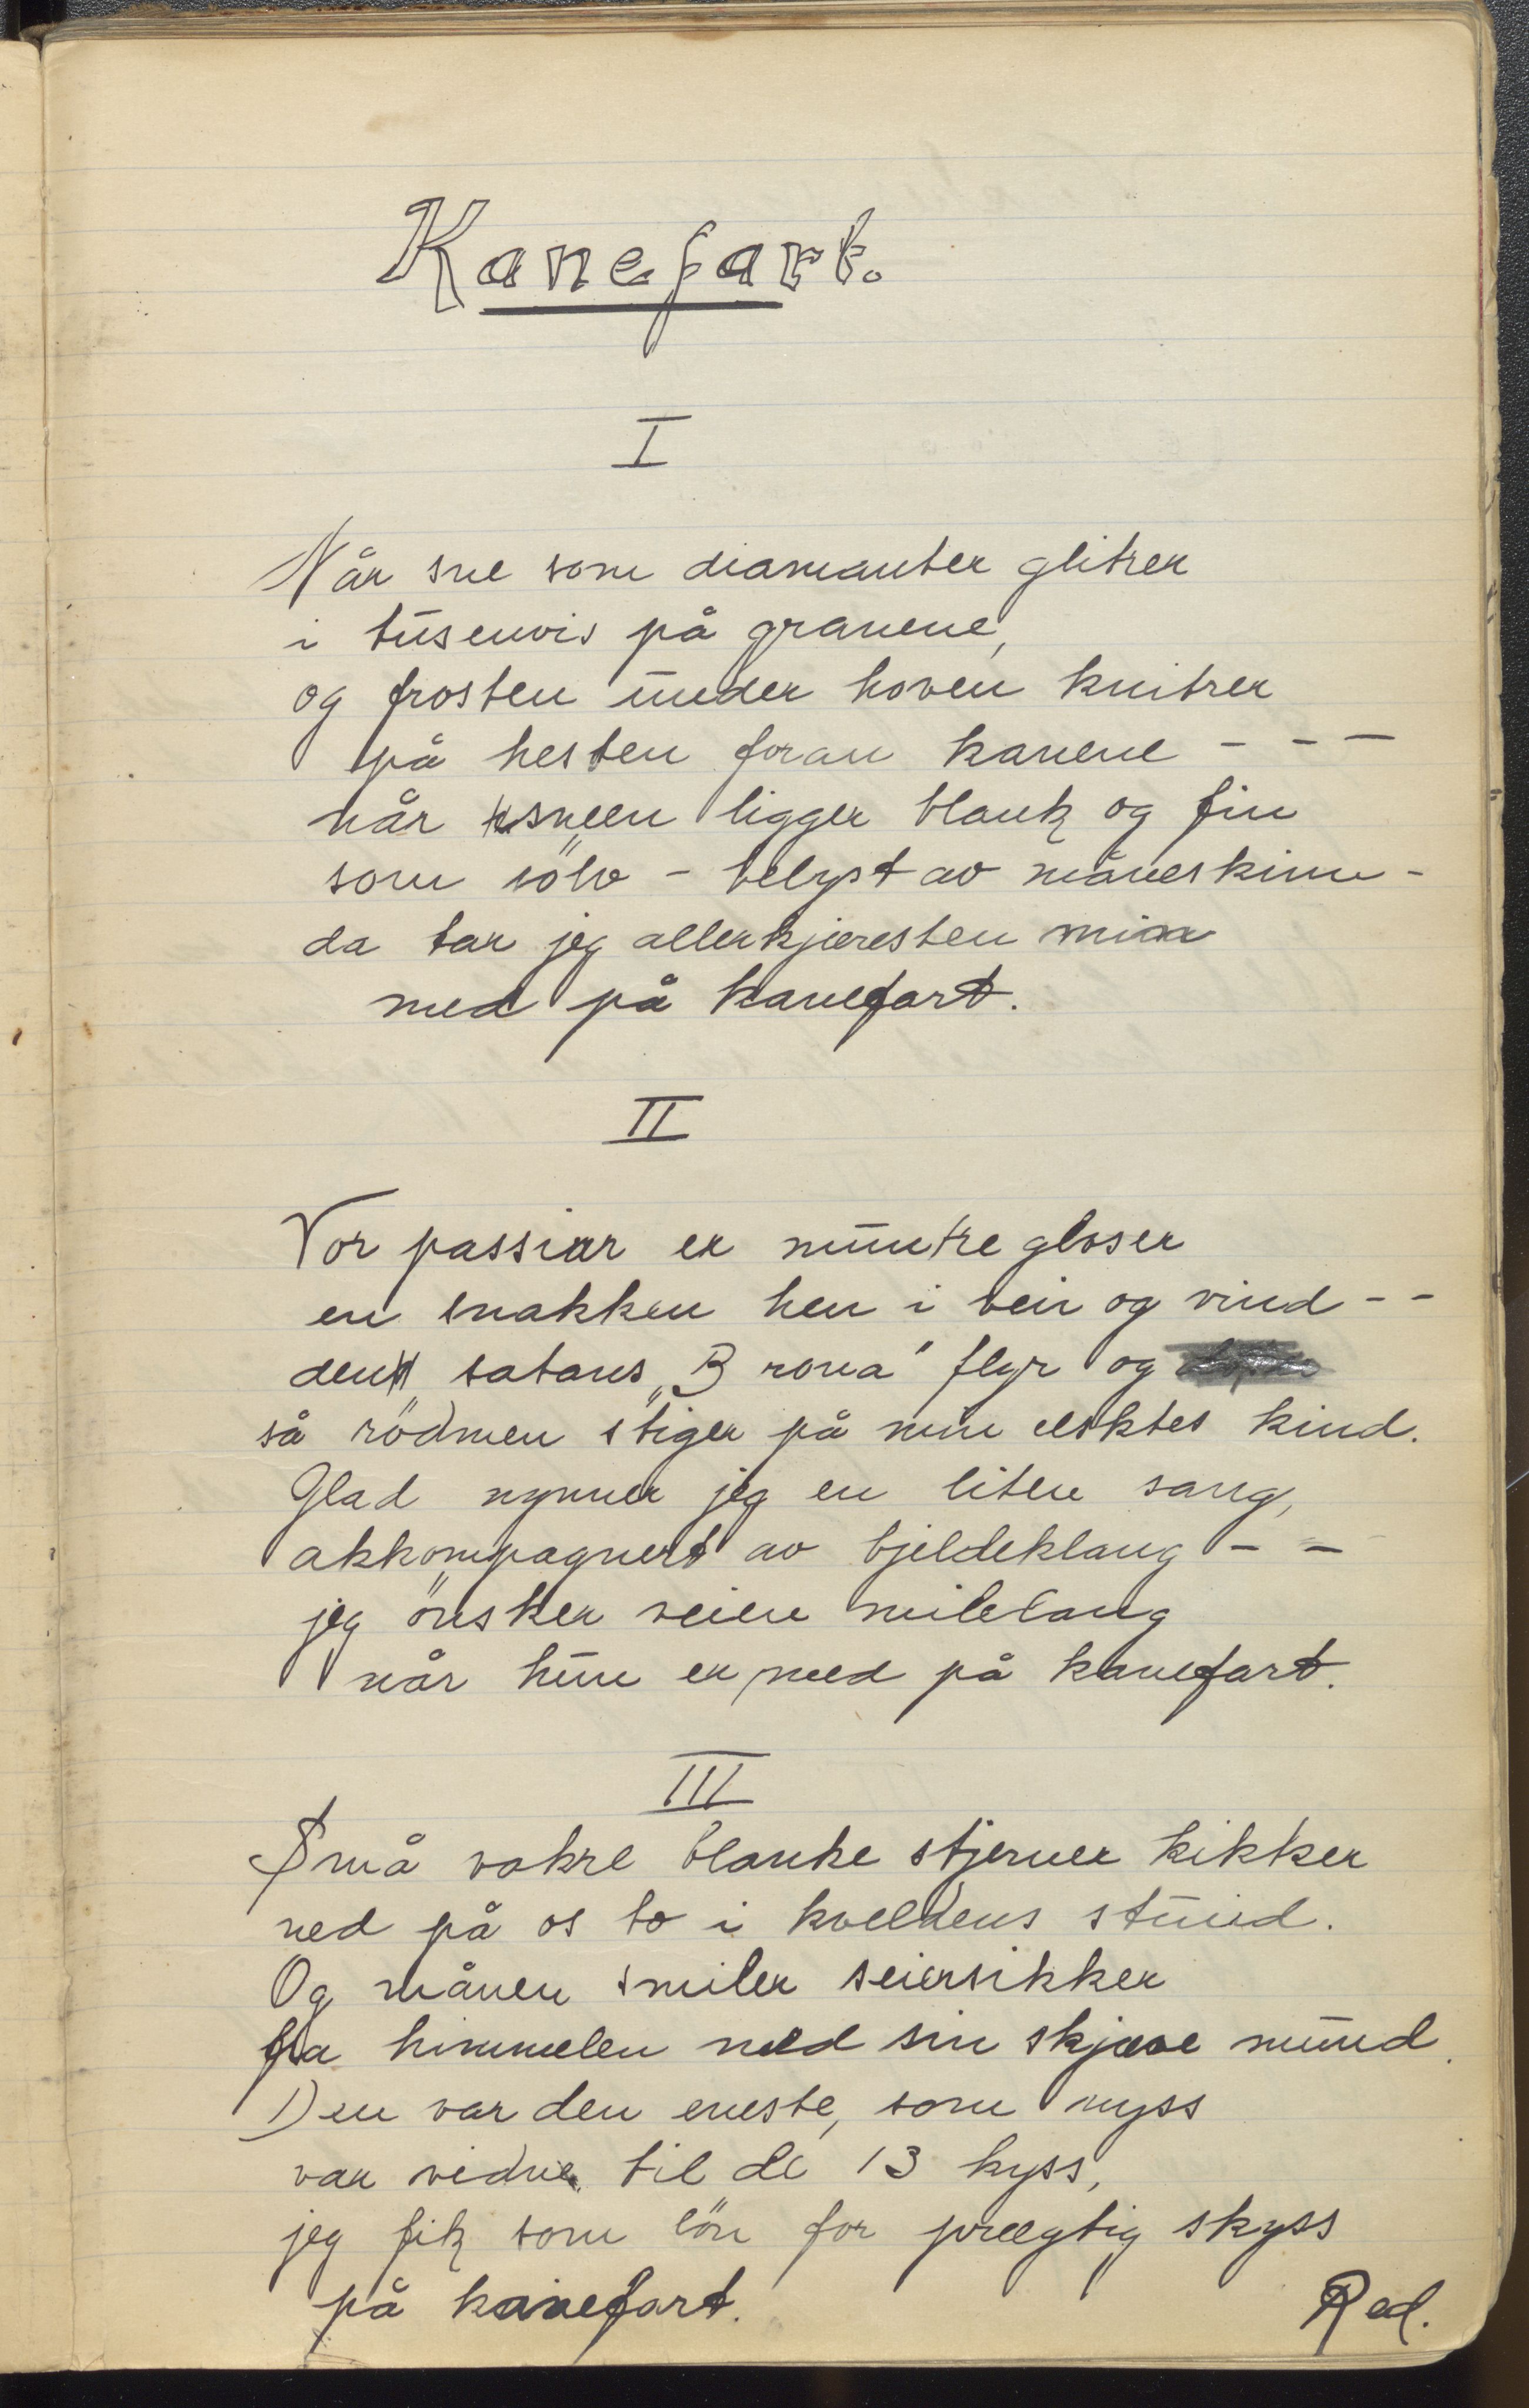 Kanefart.
I
Når sne som diamanter glitrer
i tusenvis på granene,
og frosten under hoven knitrer
på hesten foran kanene - - -
når sneen ligger blank og fin
som sölv - belyst av måneskinn -
da tar jeg allerkjæresten min
med på kanefart.
II
Vor passiar er muntre gloser
en snakken hen i veir og vind - -
den satans "Brona" flyr og
så rödmen stiger på min elsktes kind.
Glad nynner jeg en liten sang,
akkompagnert av bjeldeklang - -
jeg önsker veien milelang
når hun er med på kanefart.
III
Små vakre blanke stjerner kikker
ned på os to i kveldens stund.
Og månen smiler seiersikker
fra himmelen med sin skjæve mund.
Den var den eneste, som nyss
var vidne til de 13 kyss,
jeg fik som lön for prægtig skyss
på kanefart.
Red.